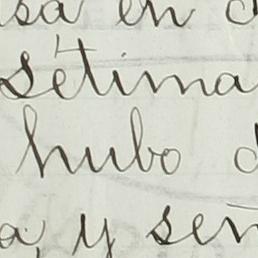 sa en
sétima
hubo d
a, y sen